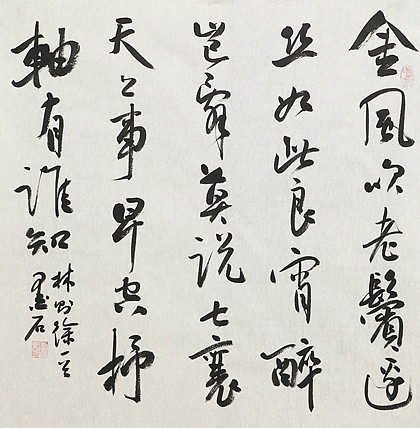 金風吹老鬢邊
丝如此良宵醉
豈辞莫説七襄
天上事早空杼
軸有誰知
林則徐一首
墨石